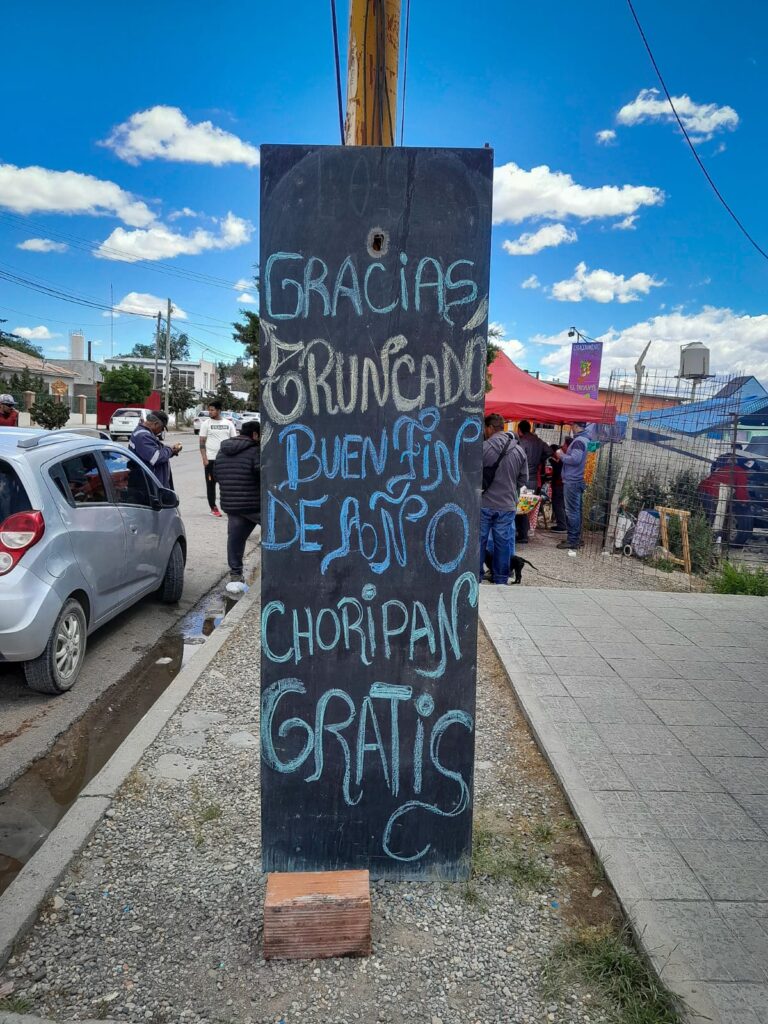 GRACiAS
TRUNCADO
BUEN FIN
DE AÑO
CHORiPAN
GRATiS